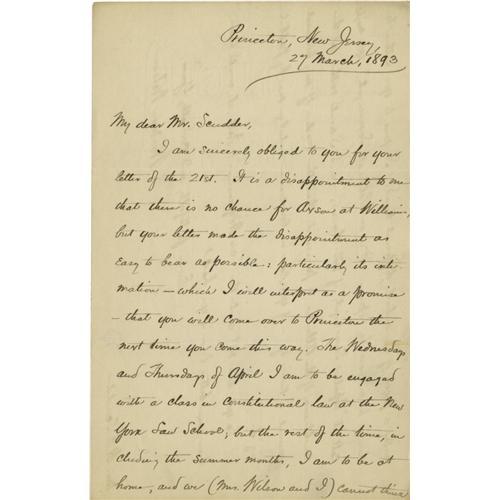 Princeton, New Jersey,
27 March, 1893
My dear Mr. Scudder,
I am sincerely obliged to you for your
letter of the 21st. It is a disappointment to me
that there is no chance for Axson at Williams,
but your letter made the disappointment as
easy to bear as possible: particularly its inti-
mation – which I will interpret as a promise
– that you will come over to Princeton the
next time you come this way. The Wednesdays
and Thursdays of April I am to be engaged
with a class in Constitutional law at the New
York Law School; but the rest of the time, in-
cluding the summer months, I am to be at
home, and we (Mrs. Wilson and I) cannot think